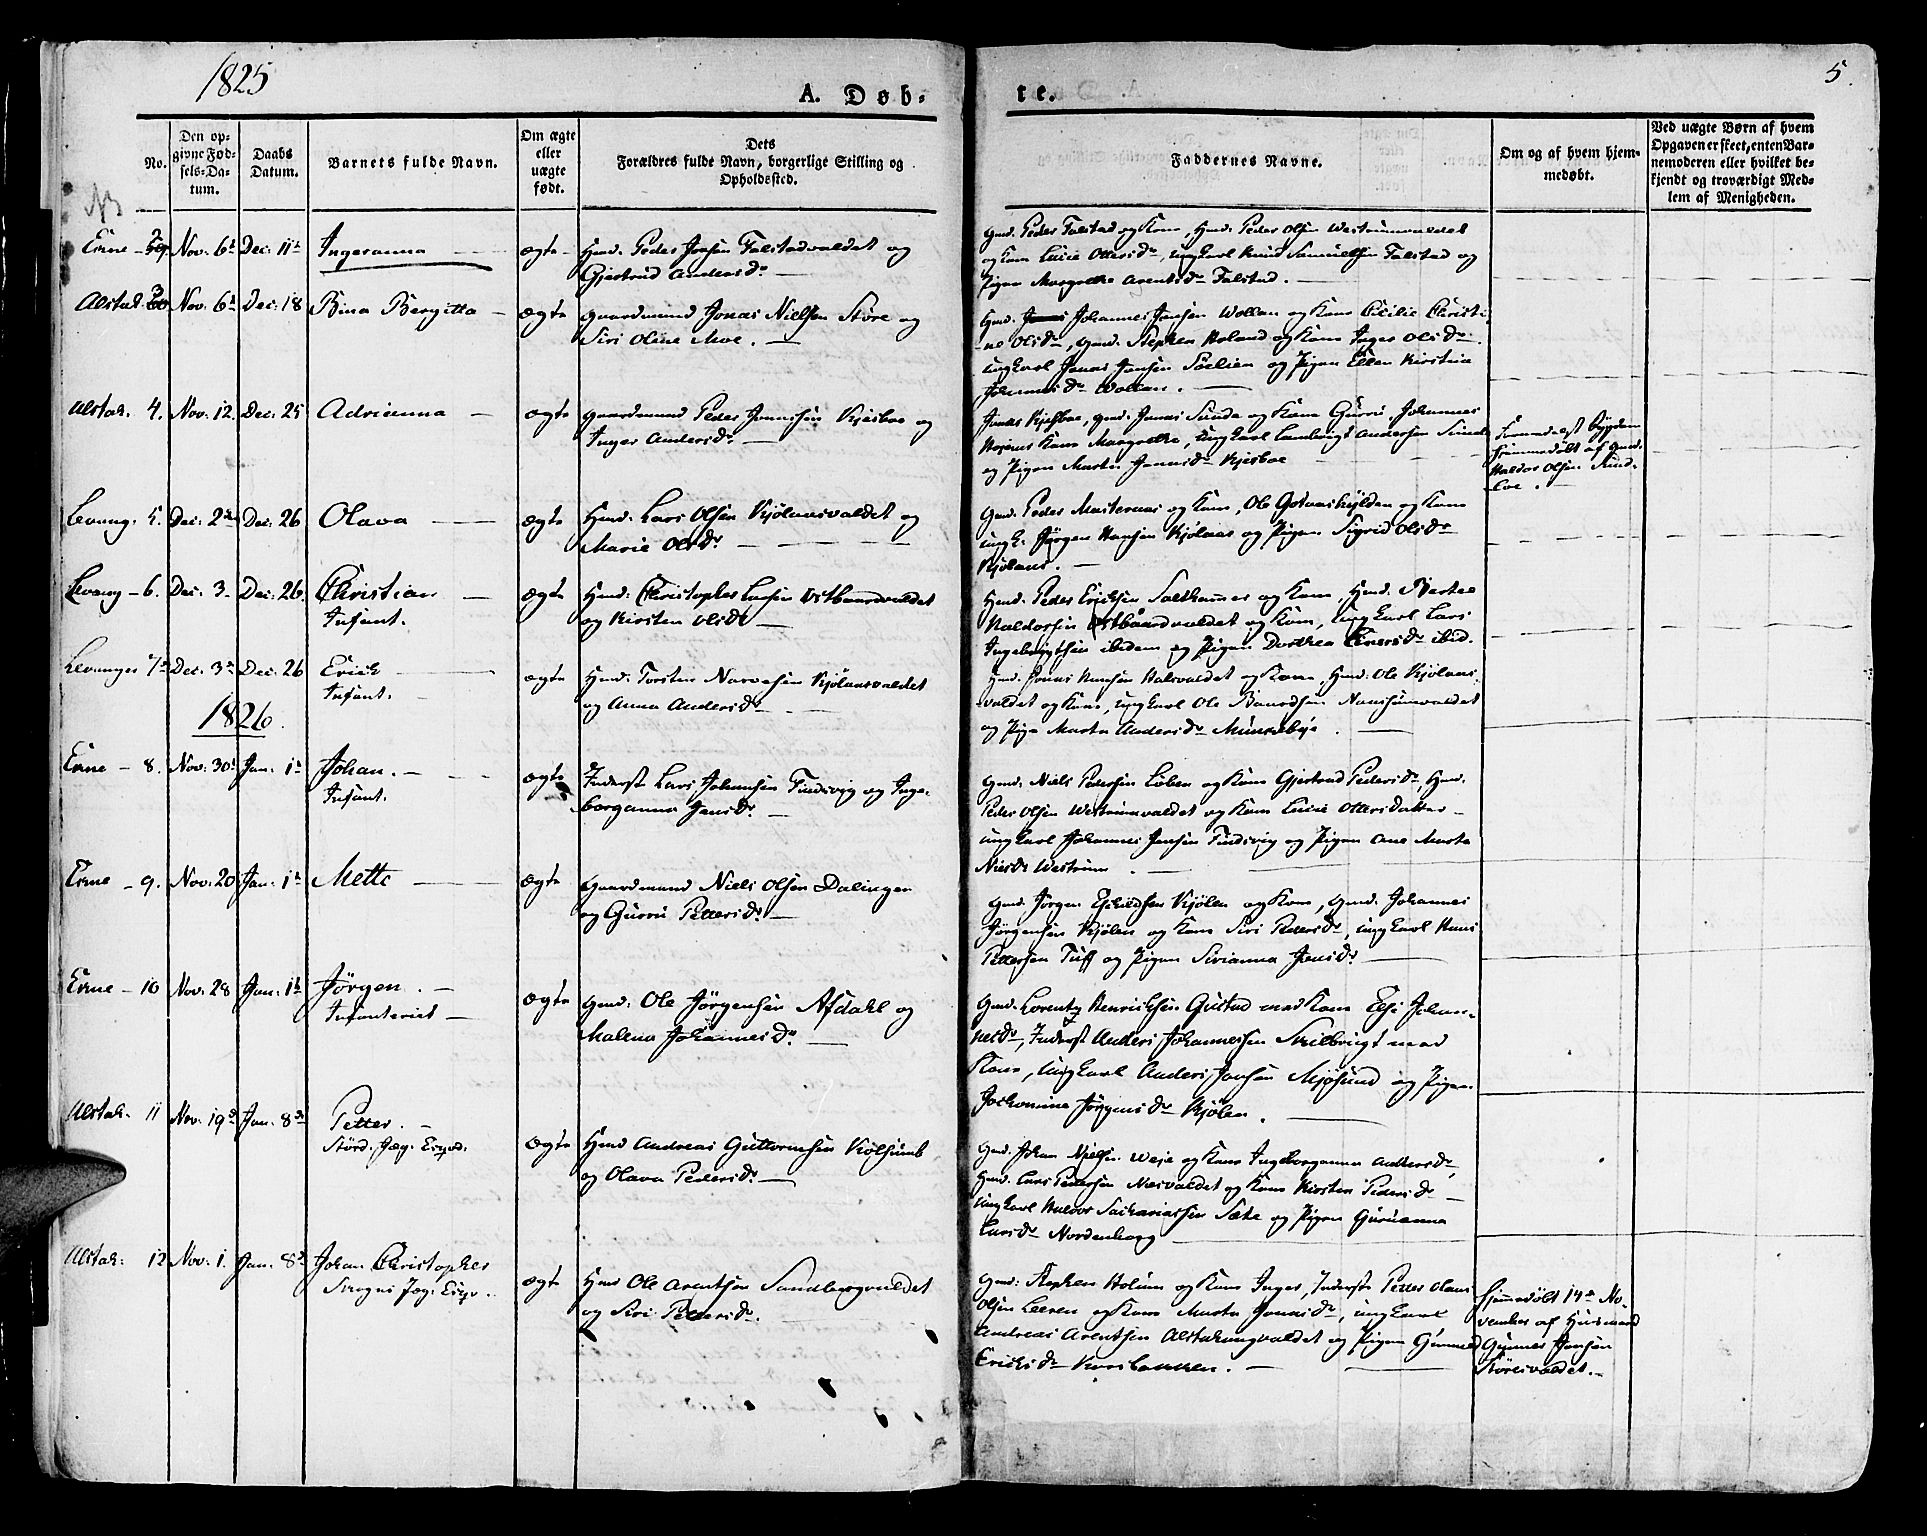 1825
A. Døb-
re.
5.
No.
Den op-
givne Fød-
sels-Da-
tum.
Daabs
Datum.
Barnets fulde Navn.
Om ægte
eller
uægte
født.
Dets
Forældres fulde Navn, borgerlige Stilling og
Opholdssted.
Faddernes Navne.
Om og af hvem hjem-
medøbt.
Ved uægte Børn af hvem
Opgaven er skeet, enten Bar-
nemoderen eller hvilket be-
kjendt og troværdigt Med-
lem af Menigheden.
NB
Exne - 2 Nov: 6te Dec: 11te Ingeranna ægte Hmd. Peder Jonsen Falstadvaldet og
Gjertrud Andersdr.
Gmd. Peder Falstad og Kone, Hmd. Peder Olsen Westrumvaldet
og Kone Lucie Ottersdr, Ungkarl Knud Samuelsen Falstad og
Pigen Margrethe Arentsdr Falstad.
Alstah. 3 Nov: 6te Dec: 18 Bina Bergitta ægte Gaardmand Jonas Nielsen Støre og
Siri Oline Moe.
Gmd. Johannes Jensen Wollan og Kone Cicilie Christi-
ne Olsdr, Gmd. Stephen Holand og Kone Inger Olsdr
Ungkarl Jonas Jensen Salien og Pigen Ellen Kirstine
Johannesdr Wollan.
Alstah. 4. Nov: 12. Dec: 25 Adrianna ægte Gaardmand Peder Jonassen Kjesboe og
Inger Andersdr.
Jonas Kjesboe, Gmd. Jonas Sunde og Kone Gurru, Johannes
Kone Margrethe, Ungkarl Andersen
og Pigen Marta Jonasdr Kjesboe
hjemmedøbt af Gmd.
Haldor Olsen
Levang. 5. Dec: 2den Dec: 26 Olava ægte Hmd. Lars Olsen Kjølaasvaldet og
Marie Olsdr.
Gmd. Peder og Kone, Ole og Kone
Ungk. Jørgen Hansen Kjølaas og Pigen Sigrid Olsdr
Kjølaas.
Levang - 6. Dec: 3 Dec: 26. Christian ægte Hmd. Christopher Larsen Østbaardvaldet
Infant. og Kirsten Olsdr
Hmd. Peder Ericksen Salthamer og Kone, Hmd.
Haldorsen Østbaardvaldet og Kone, Ungkarl Lars
Ingebrigtsen ibidem og Pigen Dorthea ibid.
Levanger 7de Dec: 3die Dec: 26 Erick ægte Hmd. Torsten Narvesen Kjølaasvaldet
Infant. og Anna Andersdr
Hmd. Jonas Hansen Halsvaldet og Kone, Hmd. Ole Kjølaas-
valdet og Kone, Ungkarl Ole Baardsen
og Pige Marta Andersdr
1826.
Exne - 8. Nov: 30te Jan: 1te Johan. ægte Inderst Lars Johansen Tindsvig og Inge-
Infant. borganna Jensdr.
Gmd. Niels Pedersen Løben og Kone Gjertrud Pedersdr, Hmd.
Peder Olsen Westrumvaldet og Kone Lucie Ottersdatter
Ungkarl Johannes Jensen Tindsvig og Pigen Ane Marta
Nielsdr Westrum
Exne - 9. Nov: 20 Jan: 1te Mette ægte Gaardmand Niels Olsen Dalingen
og Gurru Pettersdr.
Gmd. Jørgen Kjølen og Kone, Gmd. Johannes
Jørgensen Kjølen og Kone Siri Pedersdr, Ungkarl Hans
Pettersen Tuff og Pigen Sirianna Jensdr
Exne - 10 Nov: 28 Jan: 1te Jørgen. ægte Gmd: Ole Jørgensen Afdahl og
Infanterist Malena Johannesdr.
Gmd. Lorentz Henricksen Gustad med Kone Else Johan-
nesdr, Inderst Anders Johannessen med
Kone, Ungkarl Anders Jonsen Mjøsund og Pigen
Jochomine Jørgensdr Kjølen.
Alstah. 11 Nov: 19de Jan: 8de Petter. ægte Hmd Andreas Guttormsen
og Olava Pedersdr.
Gmd. Johan Nielsen Weje og Kone Ingeborganna Andersdr,
Hmd. Lars Pedersen Næsvaldet og Kone Kirsten Pedersdr
Ungkarl Haldor Sachariassen Sæte og Pigen Guruanna
Larsdr Nordenborg
Alstah: 12 Nov: 1. Jan: 8de Johan Christopher ægte Hmd Ole Arentsen Sandborgvaldet
og Siri Pedersdr.
Gmd: Stephen Holum og Kone Inger, Inderst Peder
Olsen Leeren og Kone Marta Jonasdr, Ungkarl
Andreas Arentsen Alstahaugvaldet og Pigen
Ericksdr Korsbakken.
Hjemmedøbt 14de No-
vember af Huusmand
Gunner Jonsen
Størevaldet.